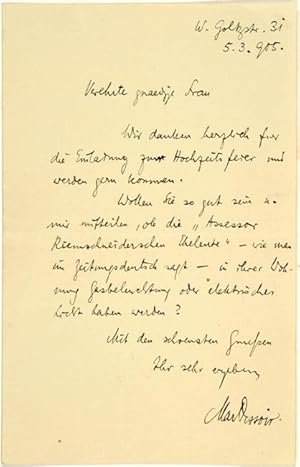 W. Goltzstr. 31
5.3.905.
Verehrte gnaedige Frau
Wir danken herzlich fuer
die Einladung zur Hochzeitsfeier und
werden gern kommen.
Wollen Sie so gut sein u.
mir mitteilen, ob die „Assessor
Riemschneiderschen Eheleute“ – wie man
im Zeitungsdeutsch sagt – in ihrer Woh-
nung Gasbeleuchtung oder elektrisches
Licht haben werden?
Mit den schoensten Gruessen
Ihr sehr ergebener
Max Dessoir.